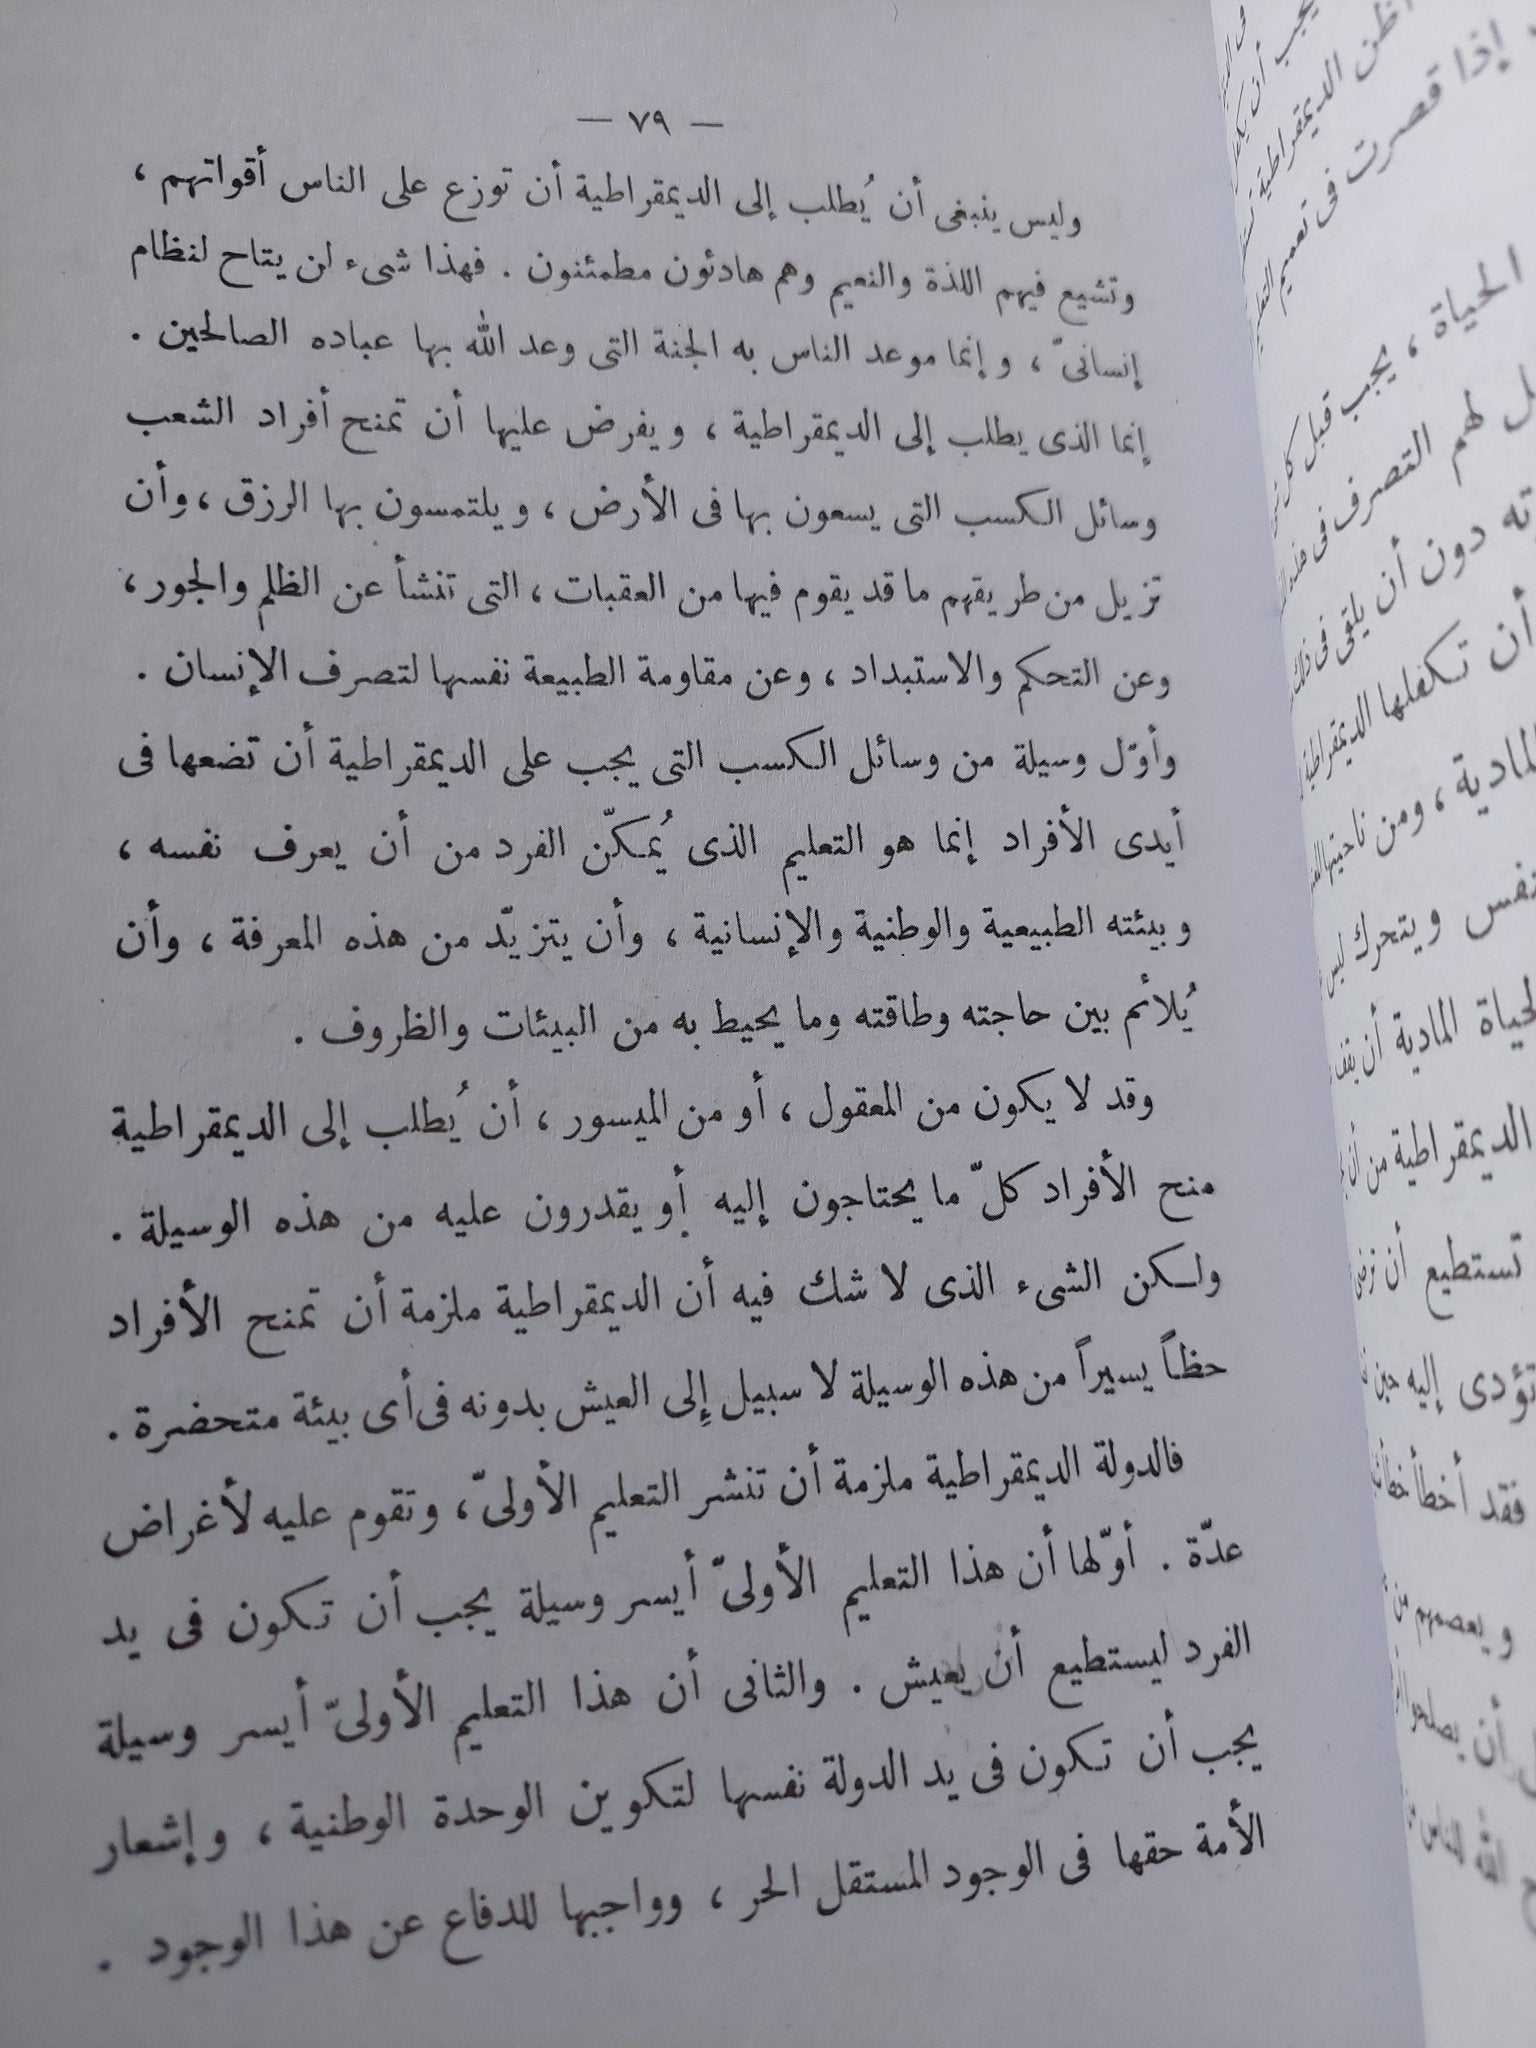 — ٧٩ —
وليس ينبغى أن يُطلب إلى الديمقراطية أن توزع على الناس أقواتهم ،
وتشيع فيهم اللذة والنعيم وهم هادئون مطمئنون . فهذا شىء لن يتاح لنظام
إنسانىّ ، وإنما موعد الناس به الجنة التى وعد الله بها عباده الصالحين .
إنما الذى يطلب إلى الديمقراطية ، ويفرض عليها أن تمنح أفراد الشعب
وسائل الكسب التى يسعون بها فى الأرض ، ويلتمسون بها الرزق ، وأن
تزيل من طريقهم ما قد يقوم فيها من العقبات ، التى تنشأ عن الظلم والجور ،
وعن التحكم والاستبداد ، وعن مقاومة الطبيعة نفسها لتصرف الإنسان .
وأوّل وسيلة من وسائل الكسب التى يجب على الديمقراطية أن تضعها فى
أيدى الأفراد إنما هو التعليم الذى يُمكّن الفرد من أن يعرف نفسه ،
وبيئته الطبيعية والوطنية والإنسانية ، وأن يتزيّد من هذه المعرفة ، وأن
يُلائم بين حاجته وطاقته وما يحيط به من البيئات والظروف .
وقد لا يكون من المعقول ، أو من الميسور ، أن يُطلب إلى الديمقراطية
منح الأفراد كلّ ما يحتاجون إليه أو يقدرون عليه من هذه الوسيلة .
ولكن الشىء الذى لا شك فيه أن الديمقراطية ملزمة أن تمنح الأفراد
حظاً يسيراً من هذه الوسيلة لا سبيل إلى العيش بدونه فى أى بيئة متحضرة .
فالدولة الديمقراطية ملزمة أن تنشر التعليم الأولىّ ، وتقوم عليه لأغراض
عدّة . أوّلها أن هذا التعليم الأولىّ أيسر وسيلة يجب أن تكون فى يد
الفرد ليستطيع أن يعيش . والثانى أن هذا التعليم الأولىّ أيسر وسيلة
يجب أن تكون فى يد الدولة نفسها لتكوين الوحدة الوطنية ، وإشعار
الأمة حقها فى الوجود المستقل الحر ، وواجبها للدفاع عن هذا الوجود .
يجب أن
الديمقراطية
إذا قصرت فى تعميم
الحياة ، يجب قبل كل
لهم التصرف فى
دون أن يلقى فى ذلك
أن تكفلها الديمقراطية
المادية ، ومن ناحيتها
ويتحرك ليس
المادية أن يقف
الديمقراطية من أن
تستطيع أن ترضى
تؤدى إليه حين
فقد أخطأ
ويعصمهم من
أن يصلحوا
الله للناس